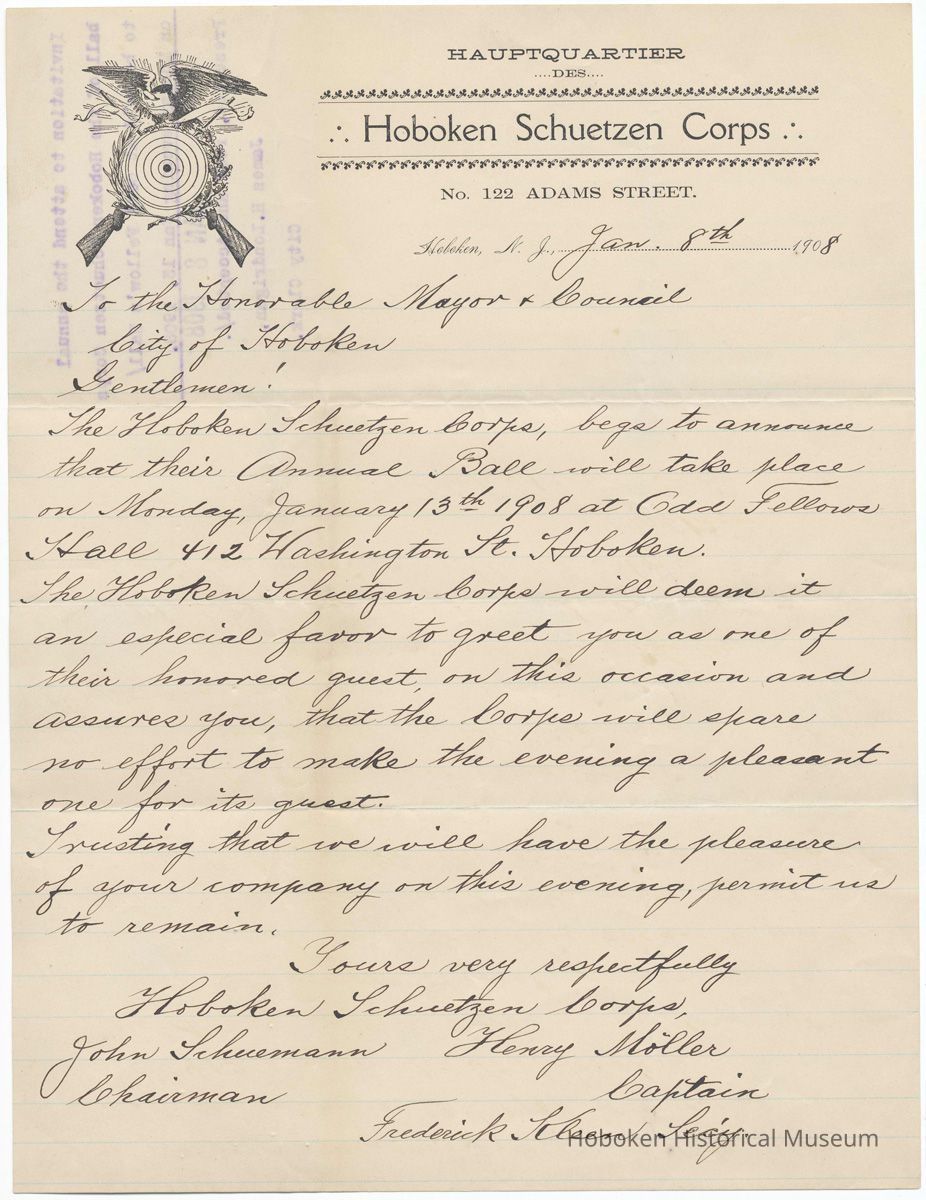 HAUPTQUARTIER
....DES....
Hoboken Schuetzen Corps
No. 122 ADAMS STREET.
Hoboken, N. J., Jan. 8th 1908
To the Honorable Mayor & Council
City of Hoboken
Gentlemen!
The Hoboken Schuetzen Corps, begs to announce
that their Annual Ball will take place
on Monday, January 13th 1908 at Odd Fellows
Hall 412 Washington St. Hoboken.
The Hoboken Schuetzen Corps will deem it
an especial favor to greet you as one of
their honored guest, on this occasion and
assures you, that the Corps will spare
no effort to make the evening a pleasant
one for its guest.
Trusting that we will have the pleasure
of your company on this evening, permit us
to remain.
Yours very respectfully
Hoboken Schuetzen Corps,
John Schuemann Henry Möller
Chairman Captain
Frederick Secy.
Hoboken Historical Museum
Invitation to attend the annual